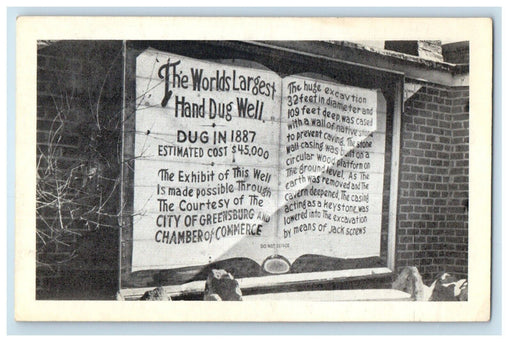 The Worlds Largest
Hand Dug Well.
DUG IN 1887
ESTIMATED COST $45,000
The Exhibit of This Well
is made possible Through
The Courtesy of The
CITY OF GREENSBURG AND
CHAMBER of COMMERCE
The huge excavtion
32 feet in diameter and
109 feet deep, was cased
with a wall of native stone
to prevent caving. The stone
wall casing was built on a
circular wood platform on
The ground level. As The
earth was removed and The
cavern deepened, The casing
acting as a keystone, was
lowered into The excavation
by means of Jack screws